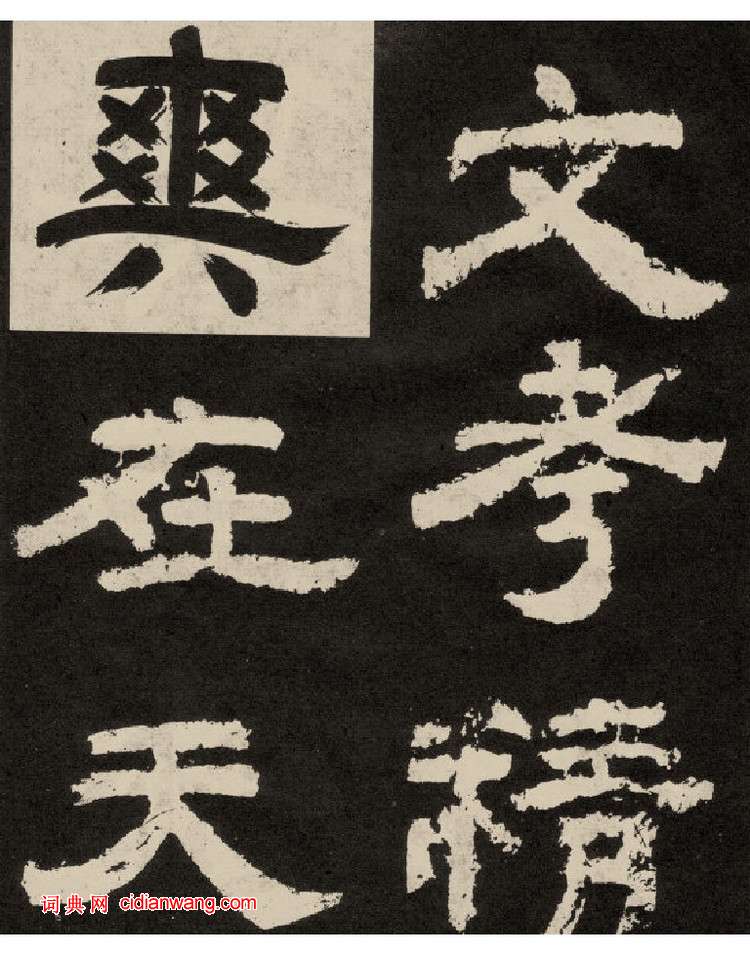 文考精
爽在天
词典网 cidianwang.com